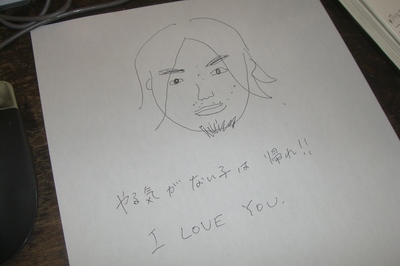 やる気がない子は 帰れ!!
I LOVE YOU.